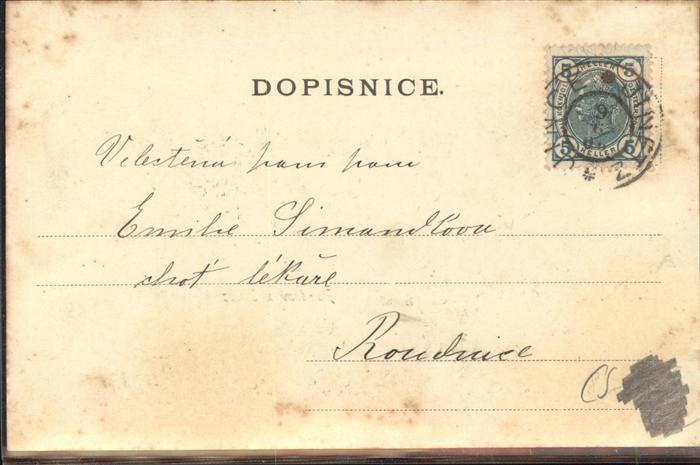 DOPISNICE.
5 HELLER 5
5 HELLER 5
Velectěná paní paní
Emilie Simandlova
choť lékaře
Roudnice
CS